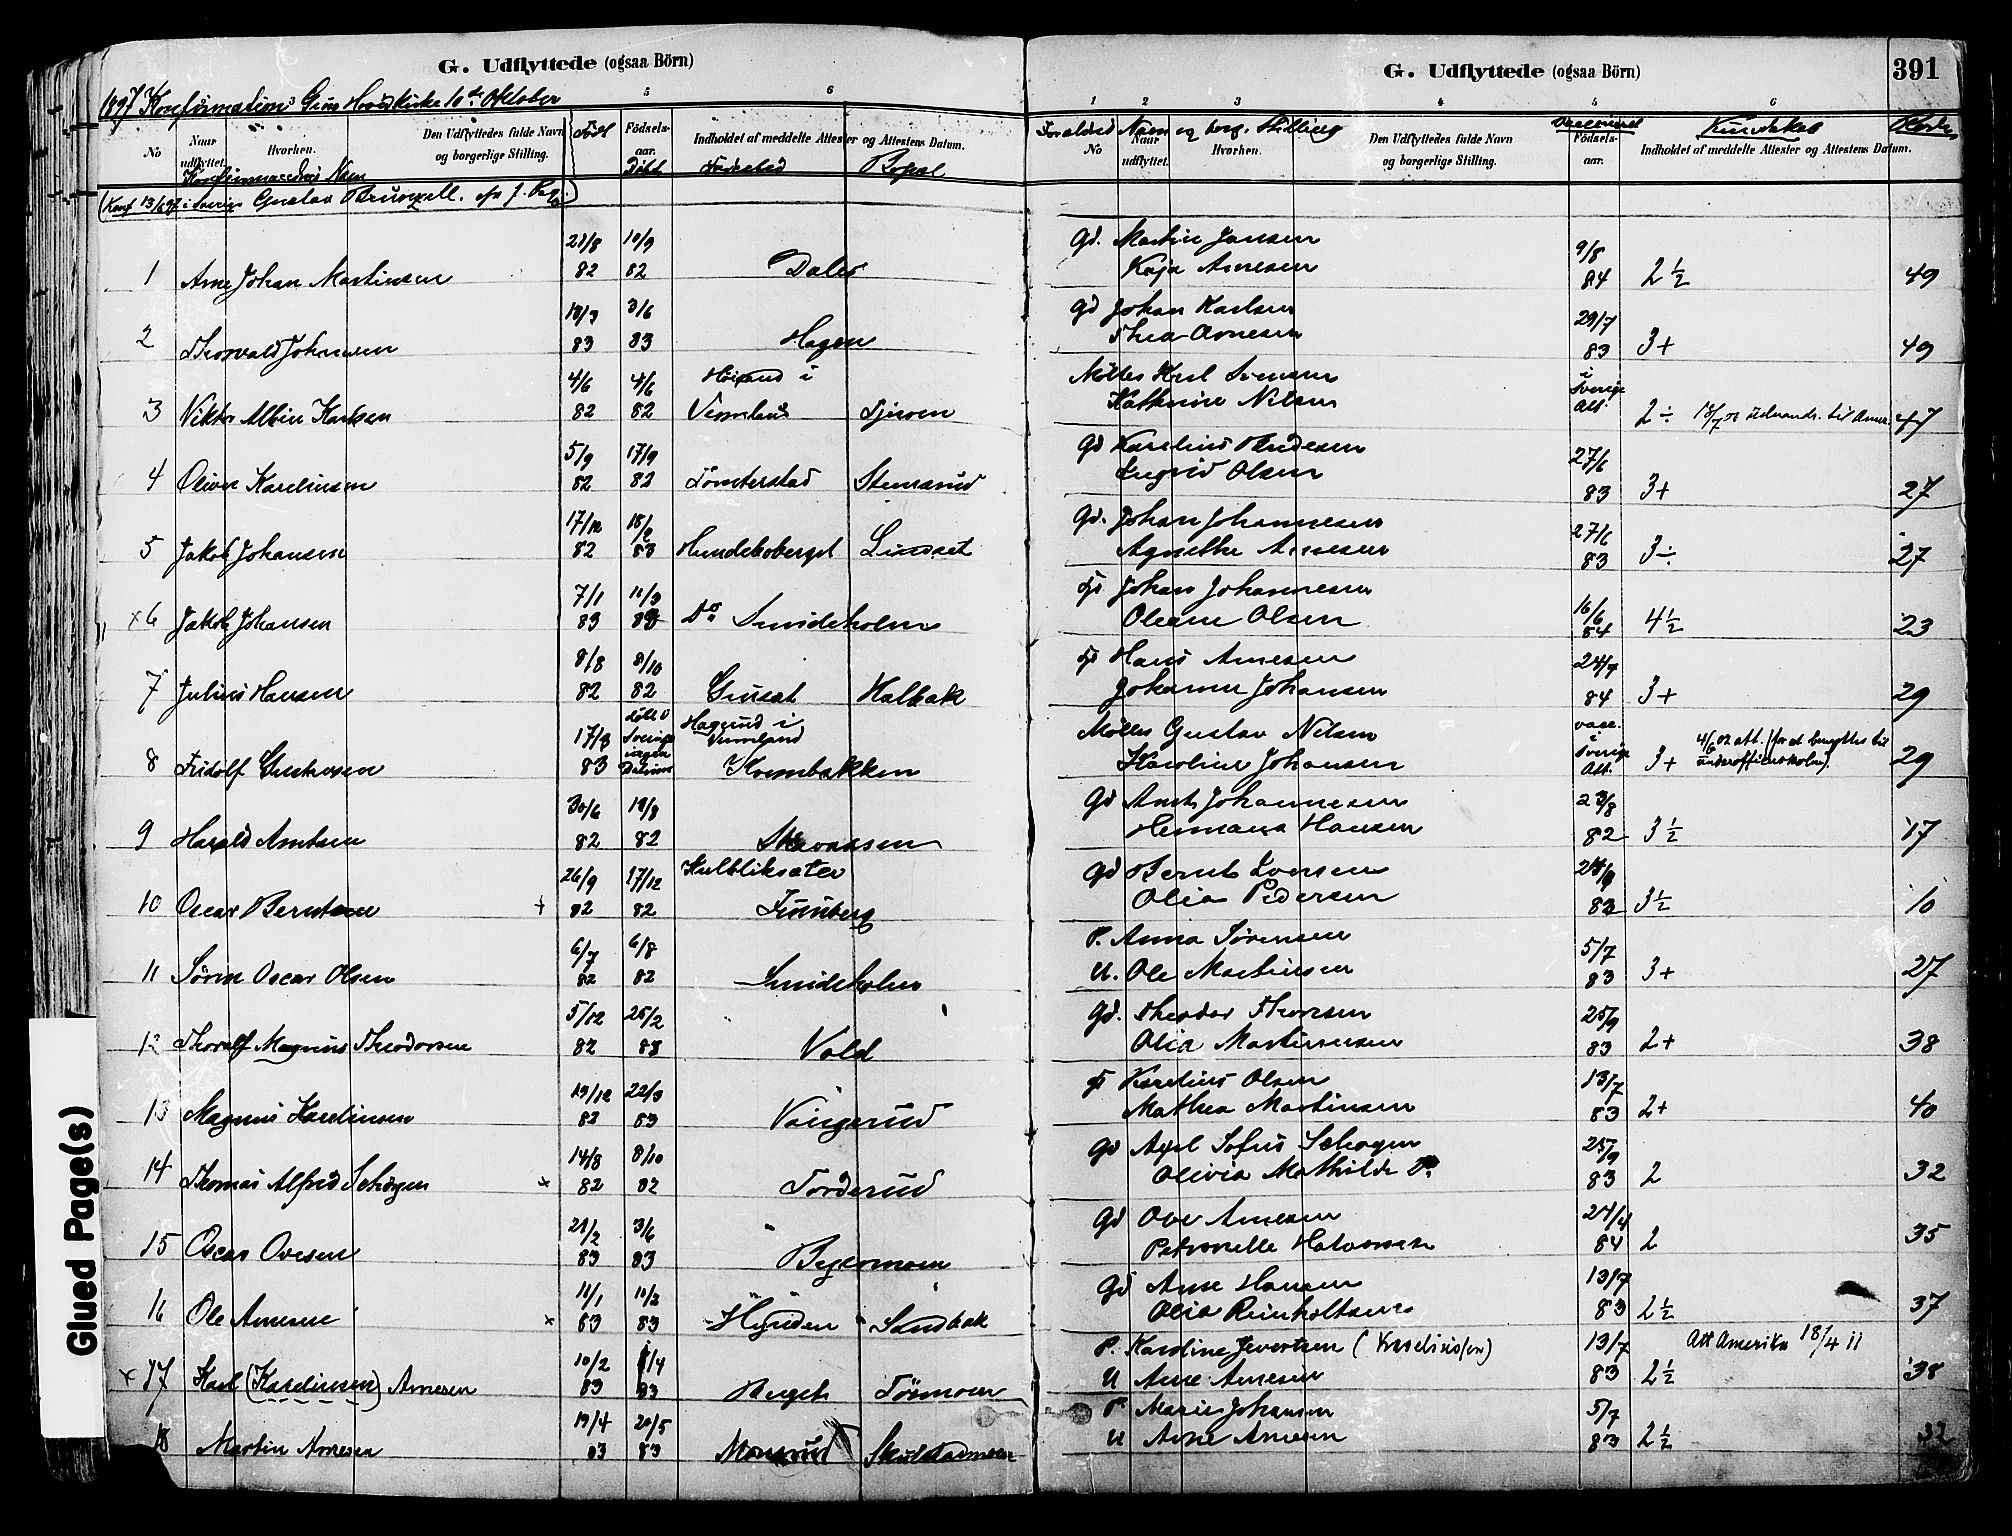 G. Udflyttede (ogsaa Börn)
1897 Konfirmation Grue Hovedkirke 10de Oktober
5 6
No
Naar udflyttet.
Hvorhen.
Den Udflyttedes fulde Navn og borgerlige Stilling.
Født
Fødsels-aar.
Indholdet af meddelte Attester og Attestens Datum.
Døbt Fødested Bopæl
Gustav
1 Arne Johan Martinsen 21/8 82 10/9 82 Daler
2 Thorvald Johansen 18/3 83 3/6 83 Hagen
3 Viktor Albin Karlsen 4/6 82 4/6 82 i Vermland Tjuren
4 Oliver Karelinsen 5/9 82 17/9 82 Tømterstad Stensrud
5 Jakob Johansen 17/12 82 18/2 83 Hundeboberget Linset
×6 Jakob Johansen 7/1 83 11/3 83 Do Smideholm
7 Julius Hansen 8/8 82 8/10 82 Grusæt Halbak
8 Fridolf Gustavsen 17/3 83 døbt i Sverige ingen Datum Hagund i Vermland Kvernbakken
9 Harald Arntsen 30/6 82 19/8 82
10 Oscar Berntsen + 26/9 82 17/12 82 Kulbliksæter Furuberg
11 Sören Oscar Olsen 6/7 82 6/8 82 Smideholm
12 Thoralf Magnus Theodorsen 5/12 82 25/2 83 Vold
13 Magnus Karelinsen 19/12 82 22/3 83 Vangerud
14 Thomas Alfred Schøyen × 14/8 82 8/10 82 Torderud
15 Oscar Ovesen 21/2 83 3/6 83 Bygermoen
16 Ole Arnesen × 11/1 83 11/2 83 Sandbak
×17 Karl (Karelinsen) Arnesen 10/2 83 1/4 83 Berget Tørmoen
18 Martin Arnesen 19/4 83 20/5 83 Monsrud Skulstadmoen
G. Udflyttede (ogsaa Börn)
391
1 2 3 4 5 6
Forældres Navn og borg. Stilling
No
Naar udflyttet.
Hvorhen.
Den Udflyttedes fulde Navn og borgerlige Stilling.
Vaccineret
Fødsels-aar.
Kundskab
Indholdet af meddelte Attester og Attestens Datum.
Gd. Martin Jansen
Kaja Arnesen 9/8 84 2½ 49
Gd Johan Karlsen
Thea Arnesen 29/7 83 3+ 49
Karl
Katherine Nilsen i Sverige Att. 2÷ udvandr. til Amer. 47
Gd Karelius Andersen
Ingrid Olsen 27/6 83 3+ 27
Gd. Johan Johannesen
Agnethe Arnesen 27/6 83 3÷ 27
Johan Johannesen
Oleane Olsen 16/6 84 4½ 23
Hans Arnesen
Johanne Johansen 24/7 84 3+ 29
Gustav Nilsen
Karoline Johansen vacc. i Sverige Att. 3+ 4/6 02 att. (for at benyttes til underofficerskolen). 29
Gd Arnt Johannesen
Hermana Hansen 23/8 82 3½ 17
Gd Bernt Iversen
Olia Pedersen 3½ 10
P. Anna Sörensen
U. Ole Martinsen 5/7 83 3+ 27
Gd. Theodor Thomsen
Olia Martinusen 25/9 83 2+ 38
Karelius Olsen
Mathea Martinsen 13/7 83 2+ 40
Gd Axel Sofus Schøyen
Olivia Mathilde 25/9 83 2 32
Gd Ove Arnesen
Petronelle Halvorsen 24/4 84 2 35
Gd Arne Hansen
Olia Reinholtsen 13/7 83 2½ 37
P. Karoline Jevertsen (Kareliusson) 13/7 83 Att Amerika 18/4 11
U Arne Arnesen 2½ 38
P. Marie Johansen
U Arne Arnesen 5/7 83 2½ 32
Glued Page(s)